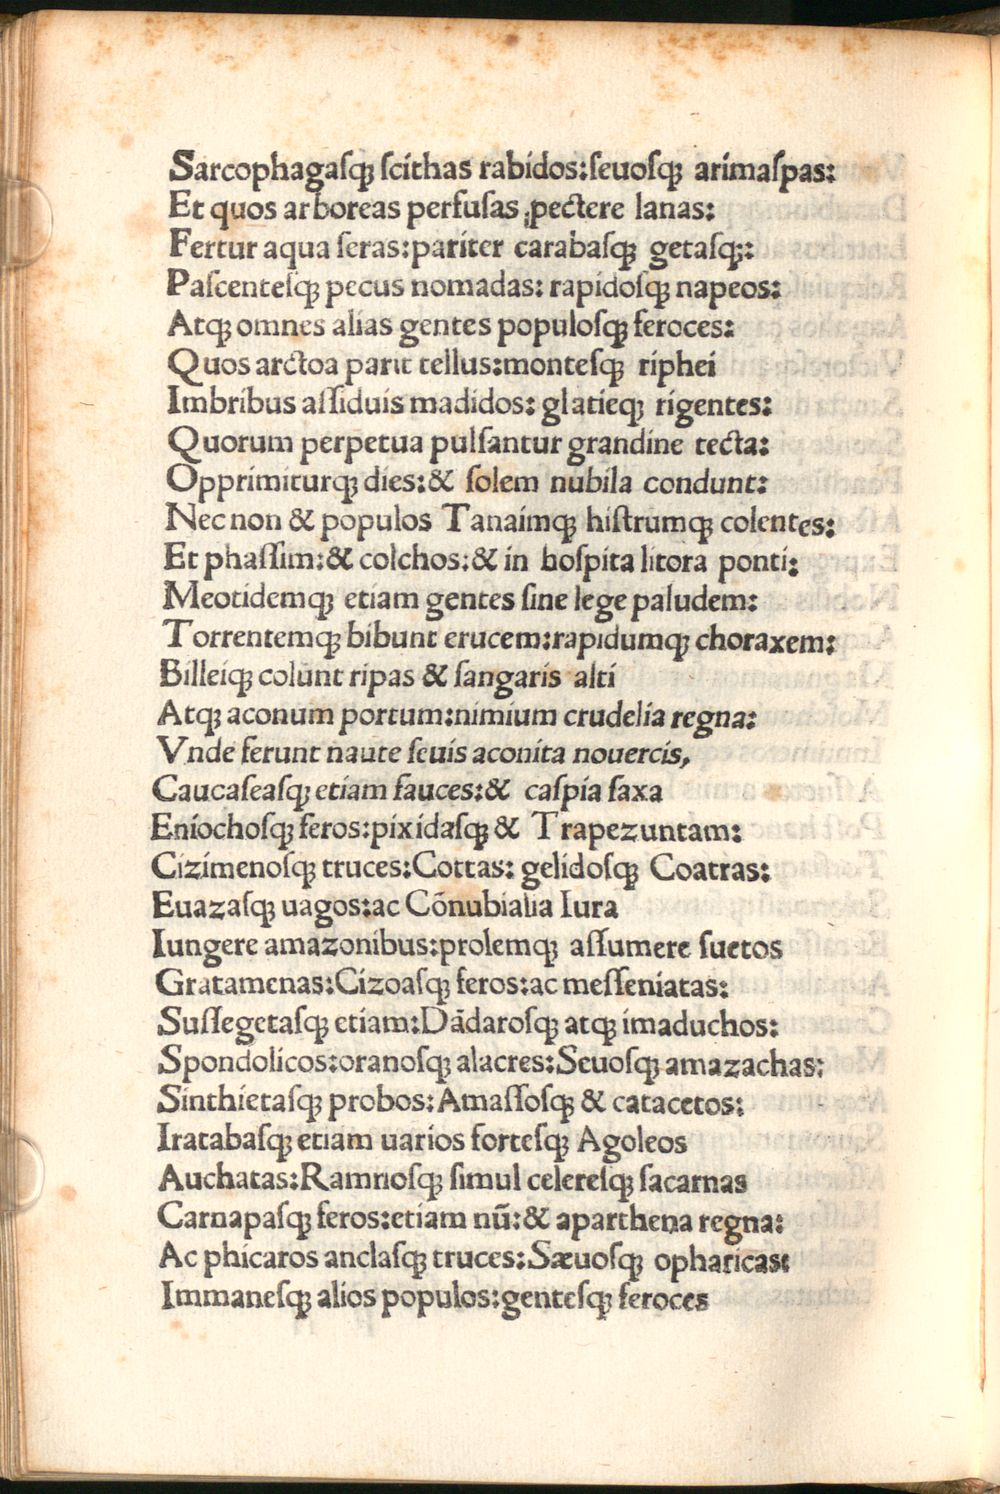 Sarcophagasꝙ ſcithas rabidos:ſeuoſꝙ arimaſpas:
Et quos arboreas perfuſas pectere lanas:
Fertur aqua ſeras:pariter carabaſꝙ getaſꝙ:
Paſcenteſꝙ pecus nomadas: rapidoſꝙ napeos:
Atꝙ omnes alias gentes populoſꝙ feroces:
Quos arctoa parit tellus:monteſꝙ riphei
Imbribus aſſiduis madidos: glatieꝙ rigentes:
Quorum perpetua pulſantur grandine tecta:
Opprimiturꝙ dies:& ſolem nubila condunt:
Nec non & populos Tanaimꝙ hiſtrumꝙ colentes:
Et phaſſim:& colchos:& in hoſpita litora ponti:
Meotidemꝙ etiam gentes ſine lege paludem:
Torrentemꝙ bibunt erucem:rapidumꝙ choraxem:
Billeiꝙ colunt ripas & ſangaris alti
Atꝙ aconum portum:nimium crudelia regna:
Vnde ferunt naute ſeuis aconita nouercis,
Caucaſeaſꝙ etiam fauces:& caſpia ſaxa
Eniochoſꝙ feros:pixidaſꝙ & Trapezuntam:
Cizimenoſꝙ truces:Cottas: gelidoſꝙ Coatras:
Euazaſꝙ uagos:ac Cōnubialia Iura
Iungere amazonibus:prolemꝙ aſſumere ſuetos
Gratamenas:Cizoaſꝙ feros:ac meſſeniatas:
Suſſegetaſꝙ etiam:Dādaroſꝙ atꝙ imaduchos:
Spondolicos:oranoſꝙ alacres:Seuoſꝙ amazachas:
Sinthietaſꝙ probos:Amaſſoſꝙ & catacetos:
Iratabaſꝙ etiam uarios forteſꝙ Agoleos
Auchatas:Ramnoſꝙ ſimul celereſꝙ ſacarnas
Carnapaſꝙ feros:etiam nū:& aparthena regna:
Ac phicaros anclaſꝙ truces:Sæuoſꝙ opharicas:
Immaneſꝙ alios populos:genteſꝙ feroces